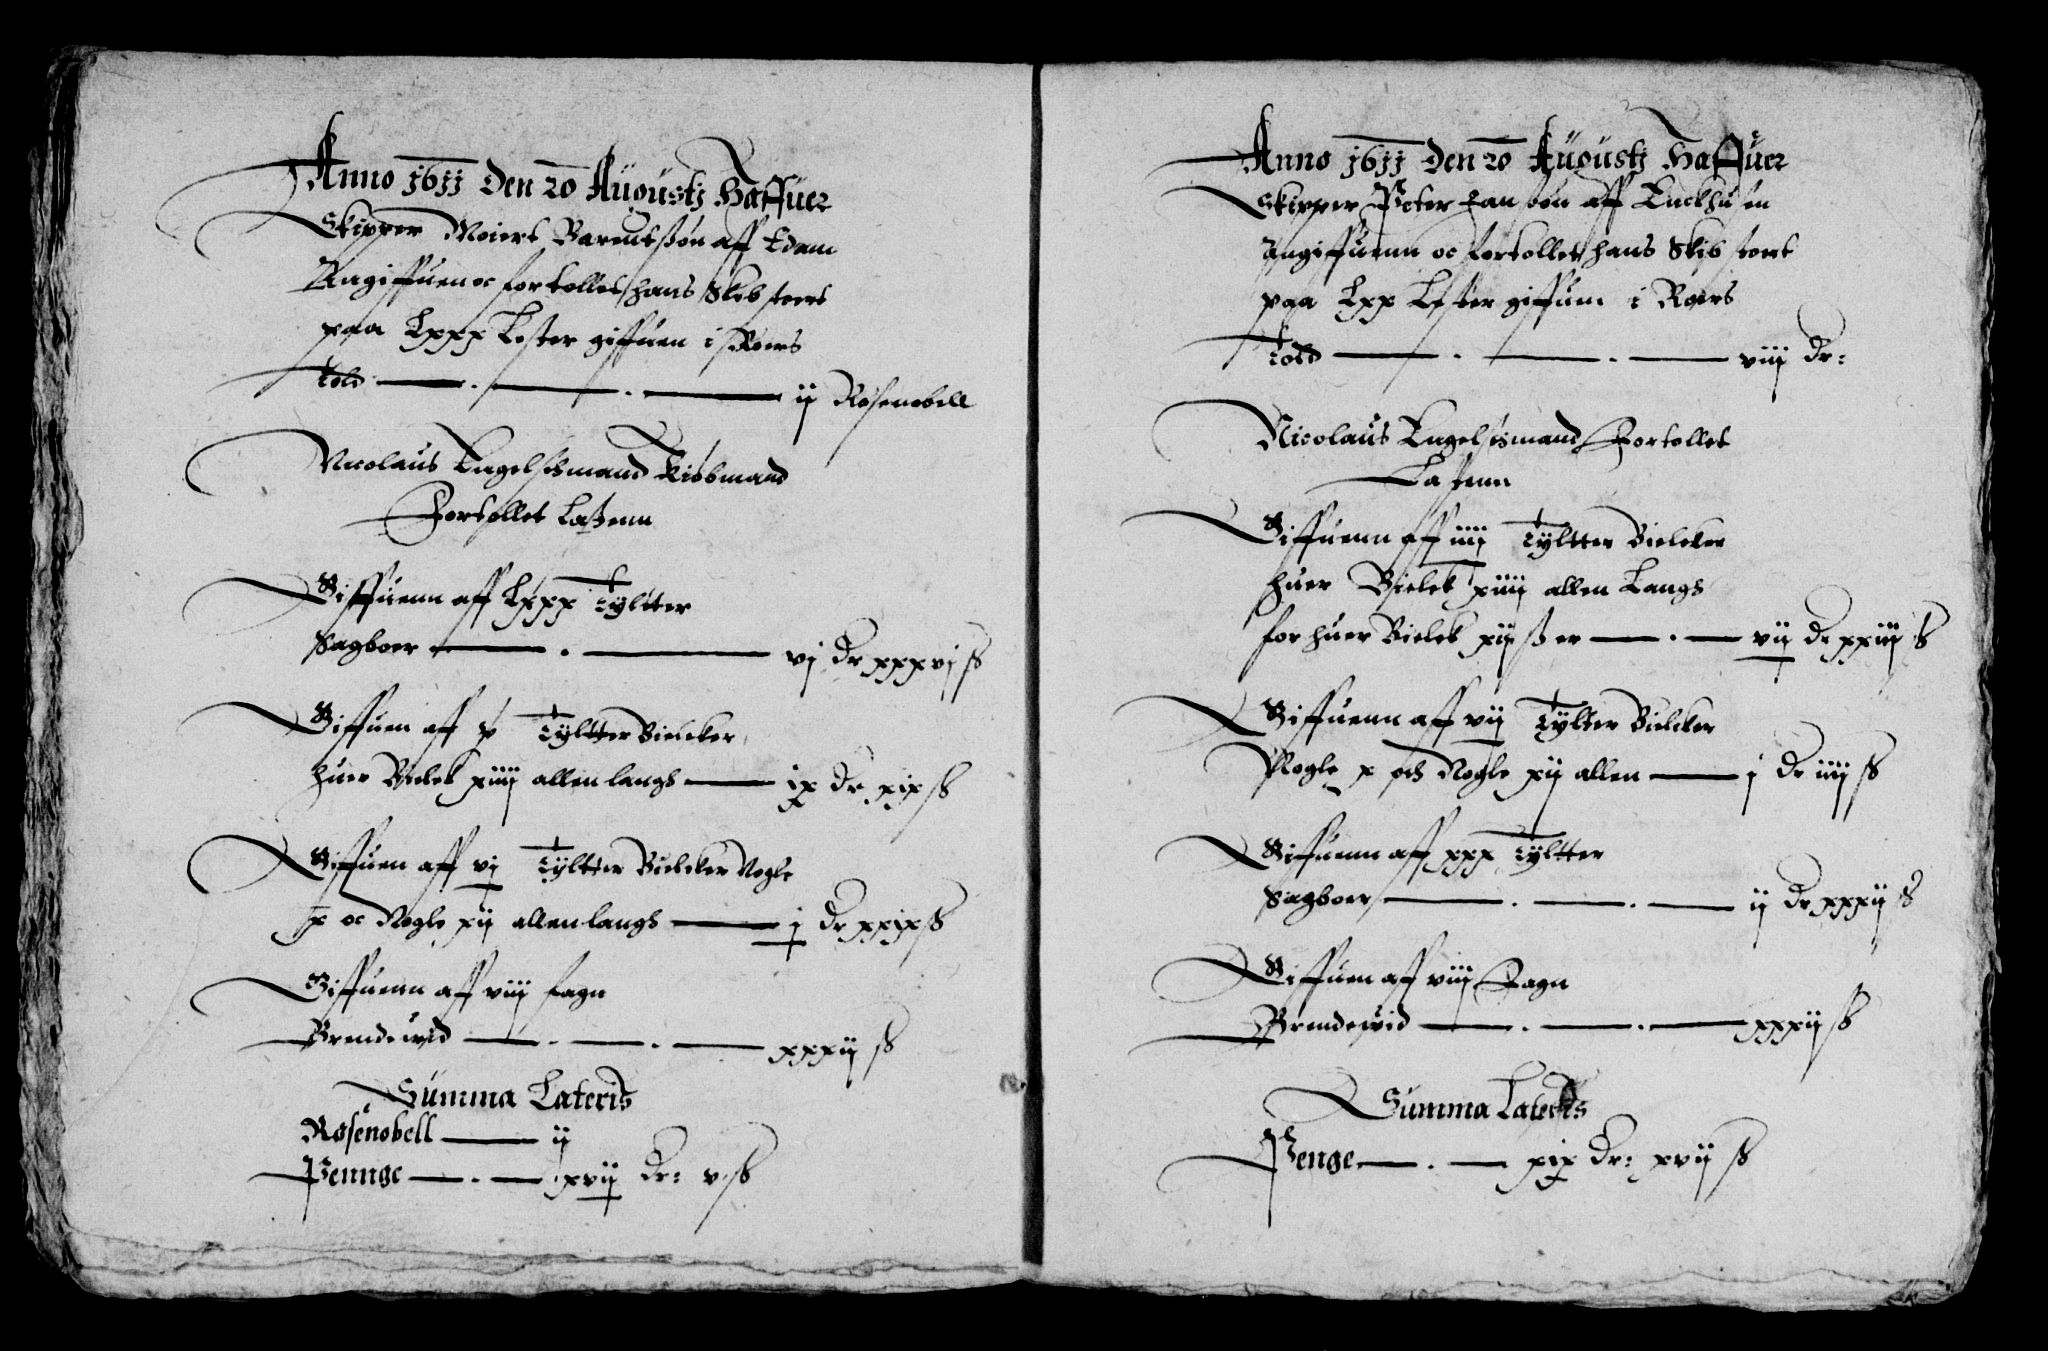 Anno 1611 den 20 Augustj Haffuer
Skipper Meiert Barentsøn aff Edam
Angiffuen oc fortollet hans Skib stoert
paa Lxxx Lester giffuen i Roers
told ij Rosenobell
Nicolaus Engelschmand Kiøbmand
Fortollet Ladtzenn
Giffuenn aff Lxxx Tyltter
Sagboer vj dr xxxvj ß
Giffuen aff x Tyltter Bielcker
huer Bielck xiiij allen langs ix dr xix ß
Giffuen aff vj Tyltter Bielcker Nogle
x oc Nogle xij allen langs j dr xxix ß
Giffuenn aff viij fagn
Brendewid xxxij ß
Summa Lateris
Rosenobell ij
Pennge xvij dr: v ß
Anno 1611 den 20 Augustj Haffuer
Skipper Peter Hansøn aff Enckhusen
Angiffuenn oc fortollet hans Skib stoert
paa Lxx Lester giffuenn i Roers
Told viij dr:
Nicolaus Engelschmand Fortollet
Lastenn
Giffuenn aff iiij Tyltter Bielcker
huer Bielck xiiij allen Langs
for huer Bielck xij ß er vij dr xxiij ß
Giffuenn aff vij Tylter Bielcker
Nogle x och Nogle xij allen j dr iiij ß
Giffuenn aff xxx Tyltter
Sagboer ij dr xxxij ß
Giffuen aff viij Fagn
Brendewid xxxij ß
Summa Lateris
Penge xix dr: xvij ß